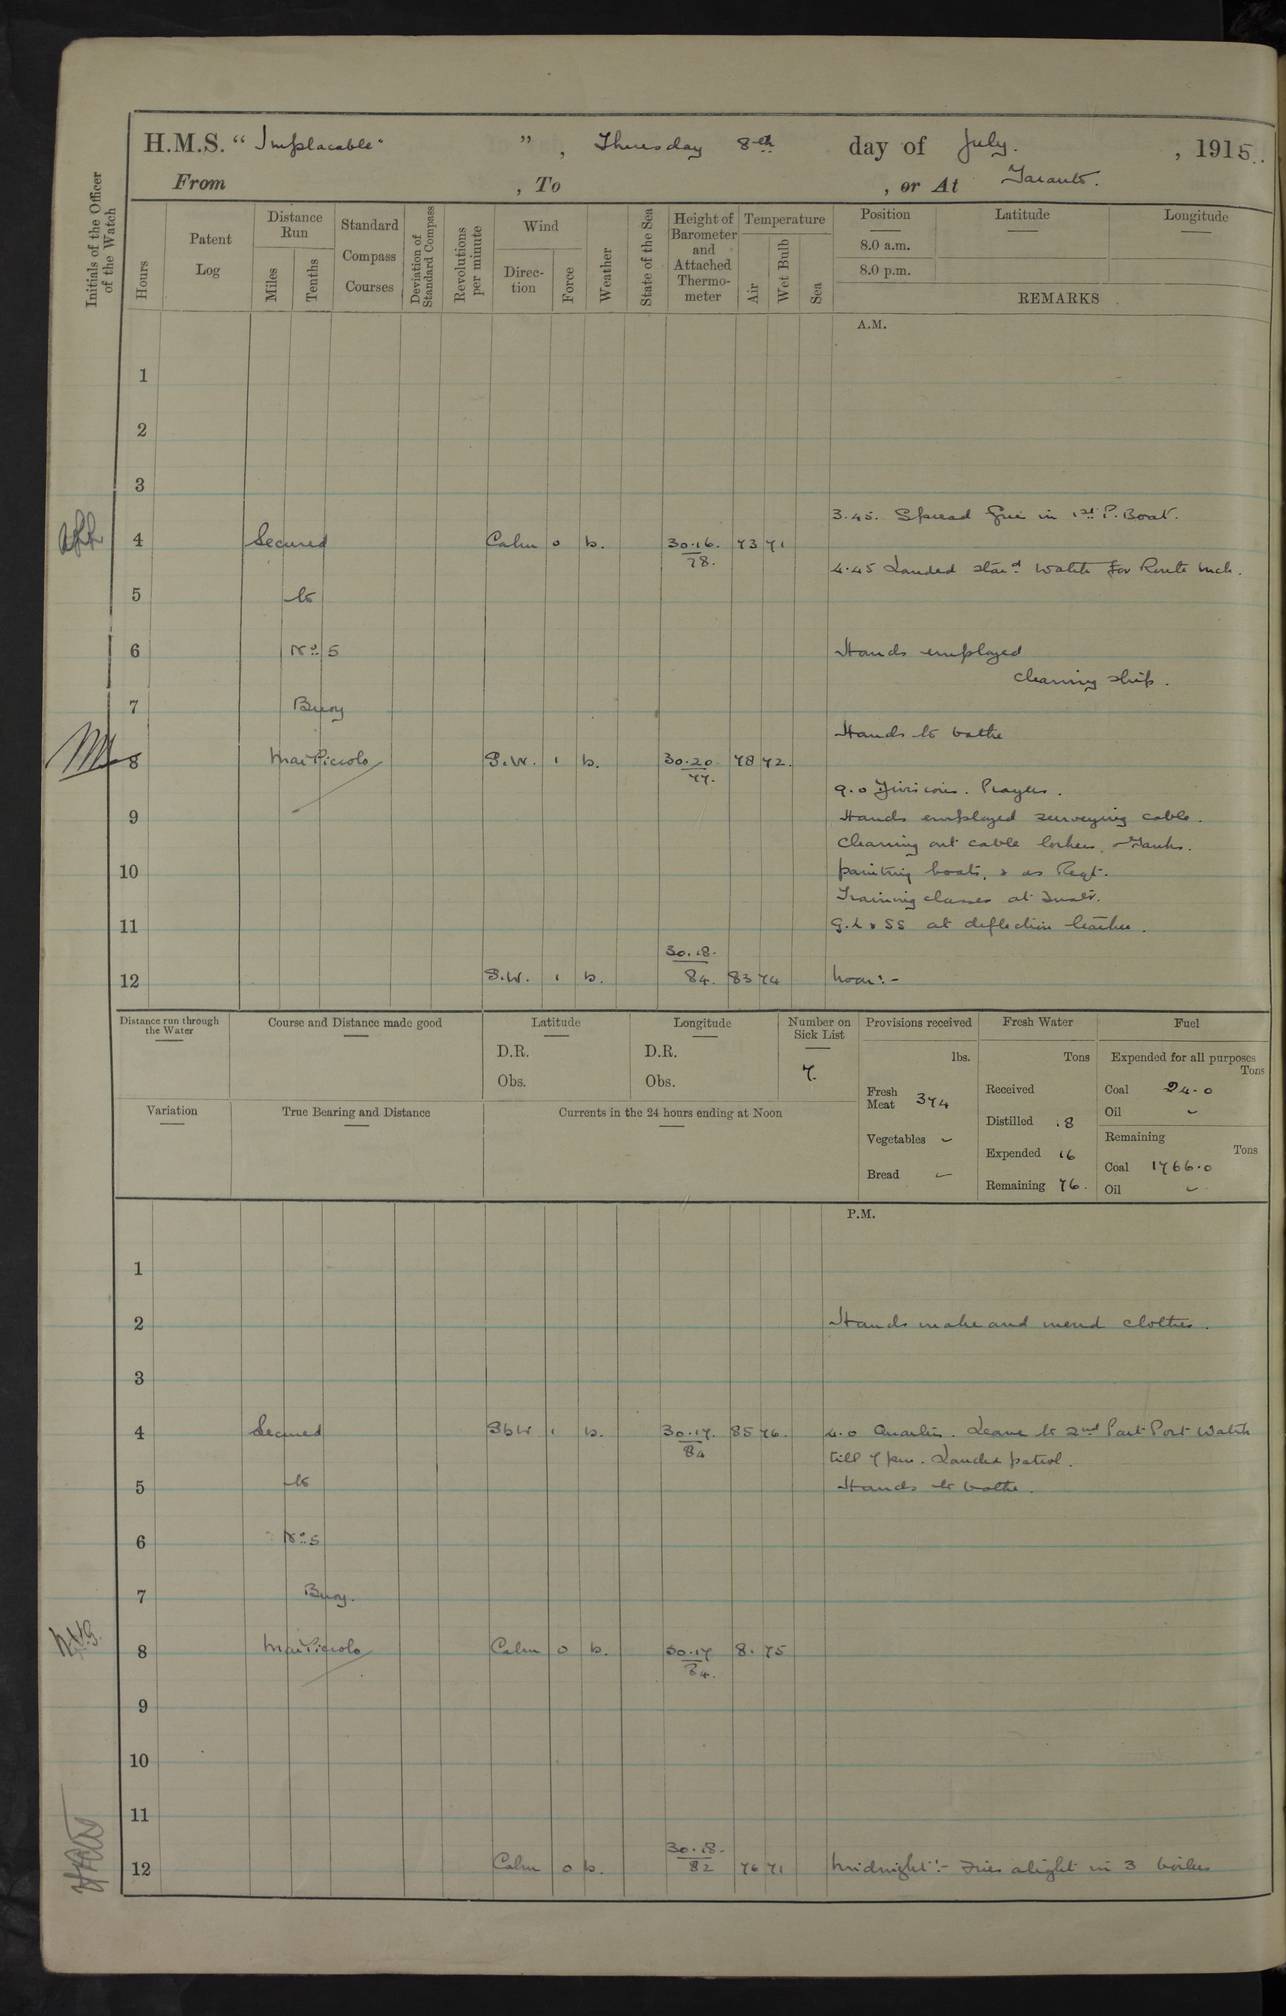 H.M.S. "Implacable" , Thursday 8th day of July. , 1915.
From , To , or At Taranto.
Initials of the Officer of the Watch
Hours
Patent Log
Distance Run
Miles
Tenths
Standard Compass Courses
Deviation of Standard Compass
Revolutions per minute
Wind
Direction
Force
Weather
State of the Sea
Height of Barometer and Attached Thermometer
Temperature
Air
Wet Bulb
Sea
Position Latitude Longitude
8.0 a.m.
8.0 p.m.
REMARKS
A.M.
1
2
3
3.45. Spread fires in 1st P. Boat.
4 Secured Calm 0 b. 30.16. 73 71
78.
4.45 Landed Starbd Watch for Route Mch.
5 to
6 No 5 Hands employed
cleaning ship.
7 Buoy
Hands to bathe
8 Mar Piccolo S.W. 1 b. 30.20 78 72.
77.
9.0 Divisions. Prayers.
9 Hands employed surveying cable.
Cleaning out cable lockers, Tanks.
10 painting boats, & as Reqt.
Training classes at Instr.
11 G.L & SS at deflection teacher.
30.18.
12 S.W. 1 b. 84. 83 74 Noon:-
Distance run through the Water
Course and Distance made good
Latitude
D.R.
Obs.
Longitude
D.R.
Obs.
Number on Sick List
7.
Provisions received
lbs.
Fresh Meat 374
Vegetables -
Bread -
Fresh Water
Tons
Received
Distilled 18
Expended 16
Remaining 76.
Fuel
Expended for all purposes
Tons
Coal 24.0
Oil -
Remaining
Tons
Coal 1766.0
Oil -
Variation
True Bearing and Distance
Currents in the 24 hours ending at Noon
P.M.
1
2 Hands make and mend clothes.
3
4 Secured SbW 1 b. 30.17. 85 76. 4.0 Quarters. Leave to 2nd Part Port Watch
84 till 7 pm. Landed patrol.
5 to Hands to bathe.
6 No 5
7 Buoy.
8 Mar Piccolo Calm 0 b. 30.17 81 75
84.
9
10
11
30.18.
12 Calm 0 b. 82 76 71 Midnight:- Fires alight in 3 boilers